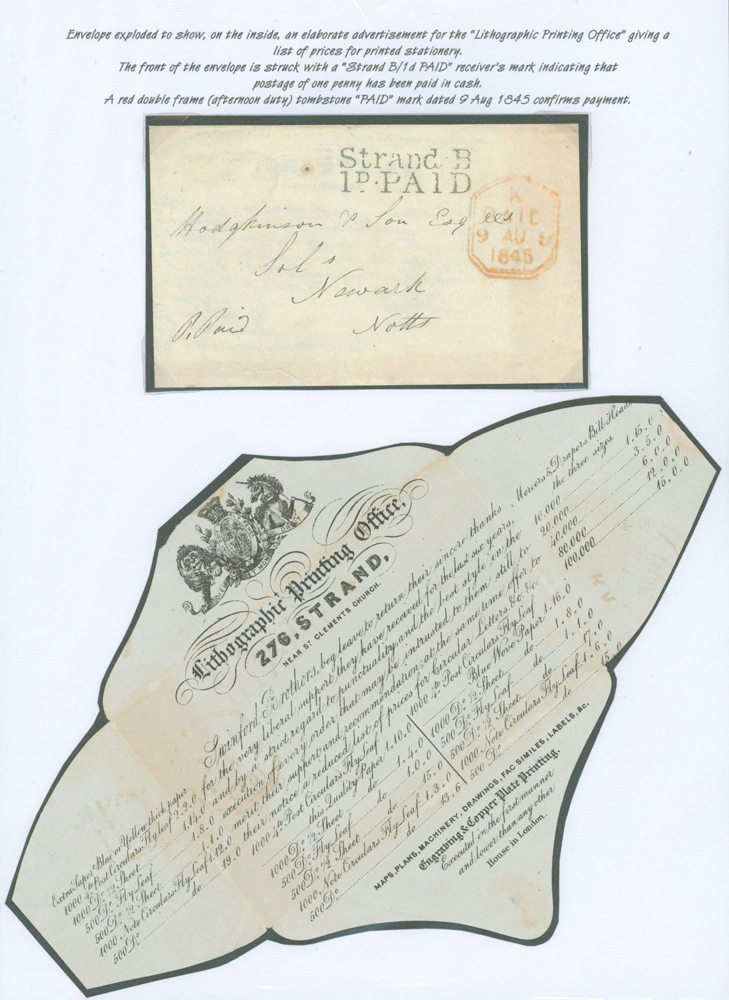 Envelope exploded to show, on the inside, an elaborate advertisement for the "Lithographic Printing Office" giving a
list of prices for printed stationery.
The front of the envelope is struck with a "Strand B/1d PAID" receiver's mark indicating that
postage of one penny has been paid in cash.
A red double frame (afternoon duty) tombstone "PAID" mark dated 9 Aug 1845 confirms payment.
Strand B
1D. PAID
K
PAID
9 AU 9
1845
Hodgkinson & Son Esq
Sols
Newark
Notts
P. Paid
Lithographic Printing Office,
276, STRAND,
NEAR ST CLEMENTS CHURCH.
Swinford Brothers, beg leave to return their sincere thanks
for the very liberal support they have received for the last six years,
and by a strict regard to punctuality and the best style in the
execution of every order that may be intrusted to them, still to
merit their support and recommendation; at the same time offer to
their notice a reduced list of prices for Circular Letters &c. &c.
1000 4to Post Circulars Fly Leaf
this Quality Paper 1.10.0
1000 Do ½ Sheet do 1.4.0
500 Do Fly Leaf 1.0.0
500 Do ½ Sheet do 15.0
1000 Note Circulars Fly Leaf 1.3.0
500 Do do 15.6
1000 4to Post Circulars Fly Leaf
Blue Wove Paper 1.16.0
1000 Do ½ Sheet do 1.8.0
500 Do Fly Leaf 1.1.0
500 Do ½ Sheet do 17.0
1000 Note Circulars Fly Leaf 1.6.0
500 Do do 15.0
MAPS, PLANS, MACHINERY, DRAWINGS, FAC SIMILES, LABELS, &c.
Engraving & Copper Plate Printing,
Executed in the first manner
and lower than any other
House in London.
Extra Super Blue or Yellow thick paper
1000 4to Post Circulars Fly Leaf 2.2.0
1000 Do ½ Sheet 1.14.0
500 Do Fly Leaf 1.8.0
500 Do ½ Sheet
1000 Note Circulars Fly Leaf 1.12.0
500 Do do 19.0
Mercers & Drapers Bill Heads
the three sizes.
10,000 1.15.0
20,000 3.5.0
40,000 6.0.0
80,000 12.0.0
100,000 15.0.0